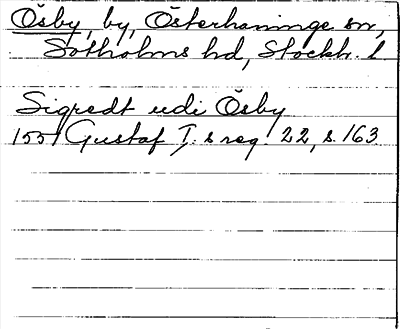 Ösby, by, Österhaninge sn,
Sotholms hd, Stockh. l
Sigredt udi Ösby
1551 Gustaf I:s reg. 22, s. 163